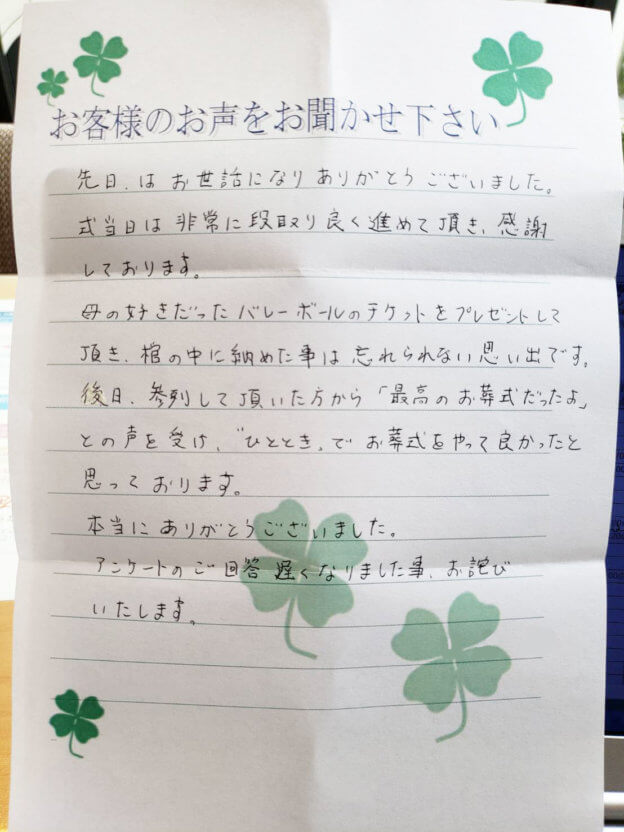 お客様のお声をお聞かせ下さい
先日、はお世話になりありがとうございました。
式当日は非常に段取り良く進めて頂き、感謝
しております。
母の好きだったバレーボールのチケットをプレゼントして
頂き、棺の中に納めた事は忘れられない思い出です。
後日、参列して頂いた方から「最高のお葬式だったよ」
との声を受け、“ひととき„でお葬式をやって良かったと
思っております。
本当にありがとうございました。
アンケートのご回答遅くなりました事、お詫び
いたします。